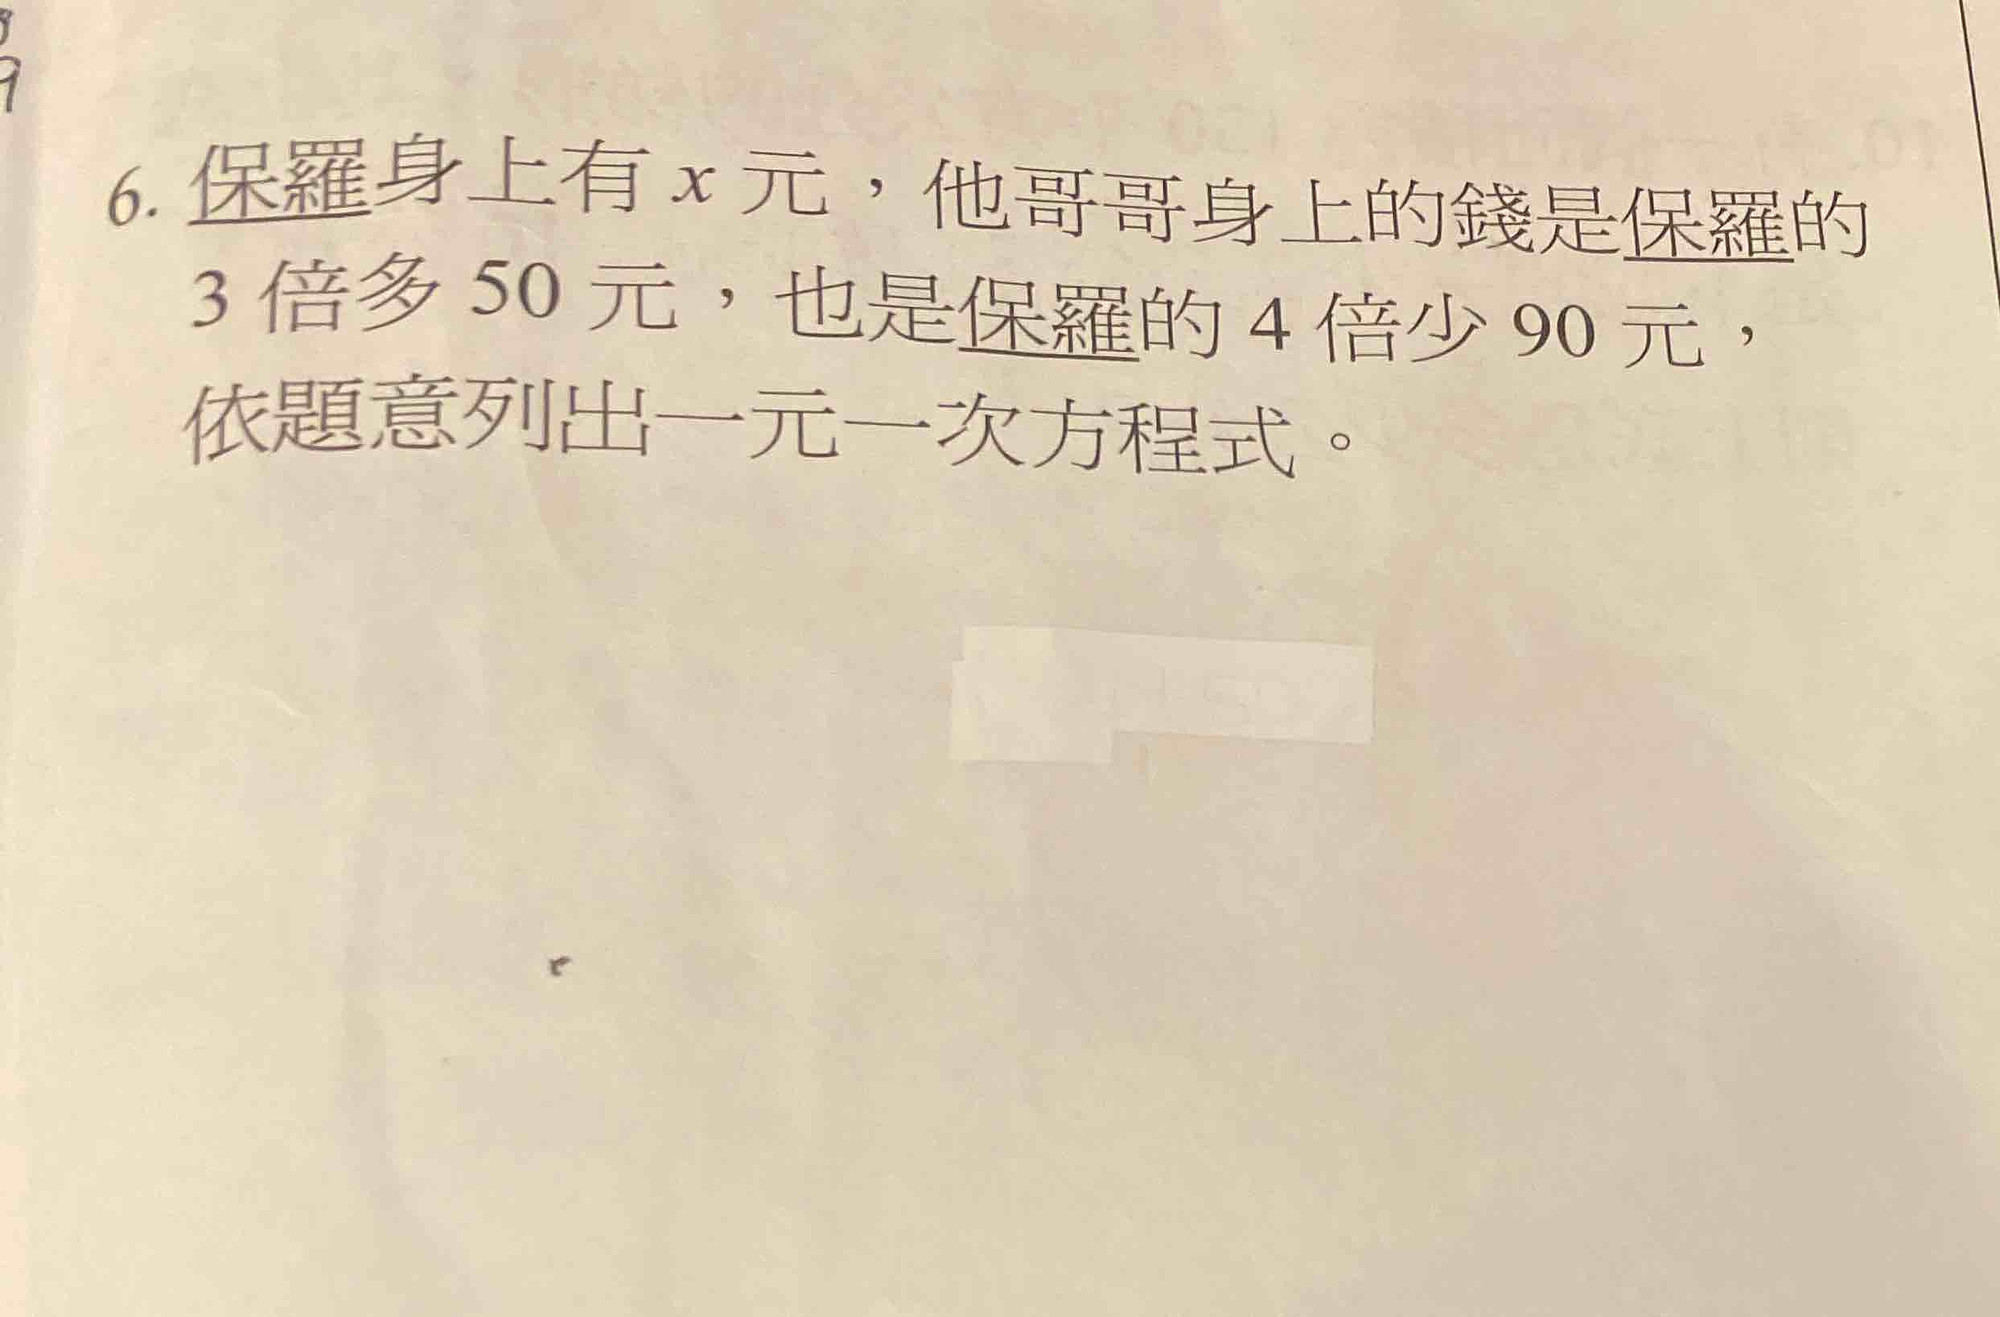 6. 保羅身上有 x 元，他哥哥身上的錢是保羅的
3 倍多 50 元，也是保羅的 4 倍少 90 元，
依題意列出一元一次方程式。